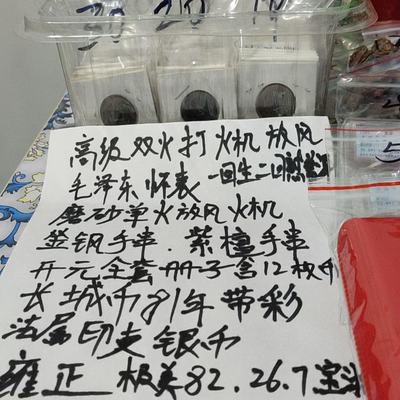 30 20 10
高级双火打火机放风
毛泽东怀表 一回生二回熟
磨砂单火放风火机
金钢手串.紫檀手串
开元全套册子含12枚币
长城币81年带彩
法属印支银币
雍正 极美82.26.7宝
5